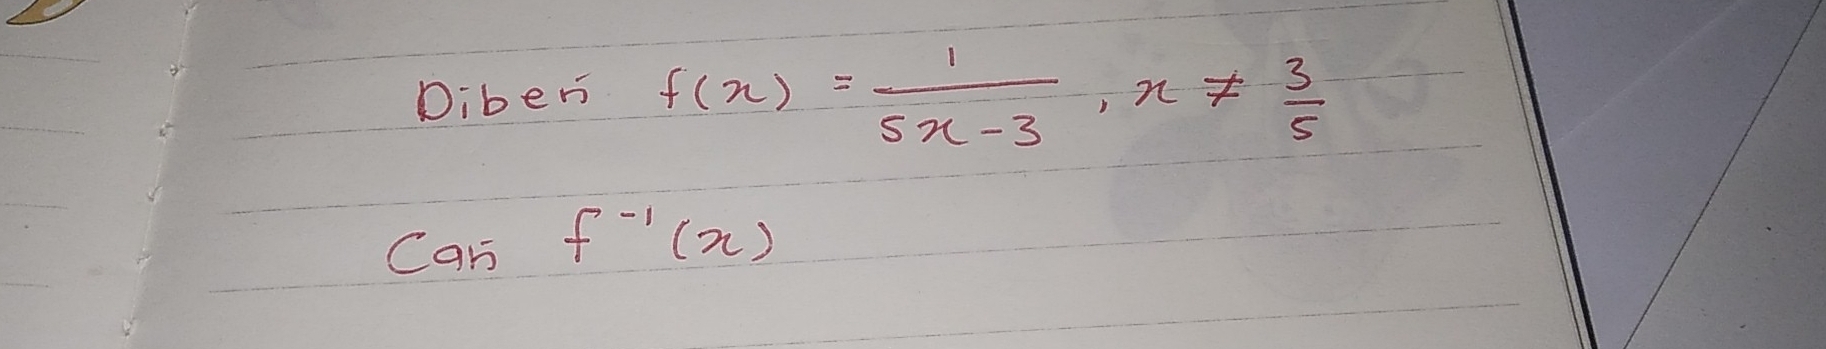 Diberi f(x) = 1/(5x-3), x ≠ 3/5
Cari f⁻¹(x)